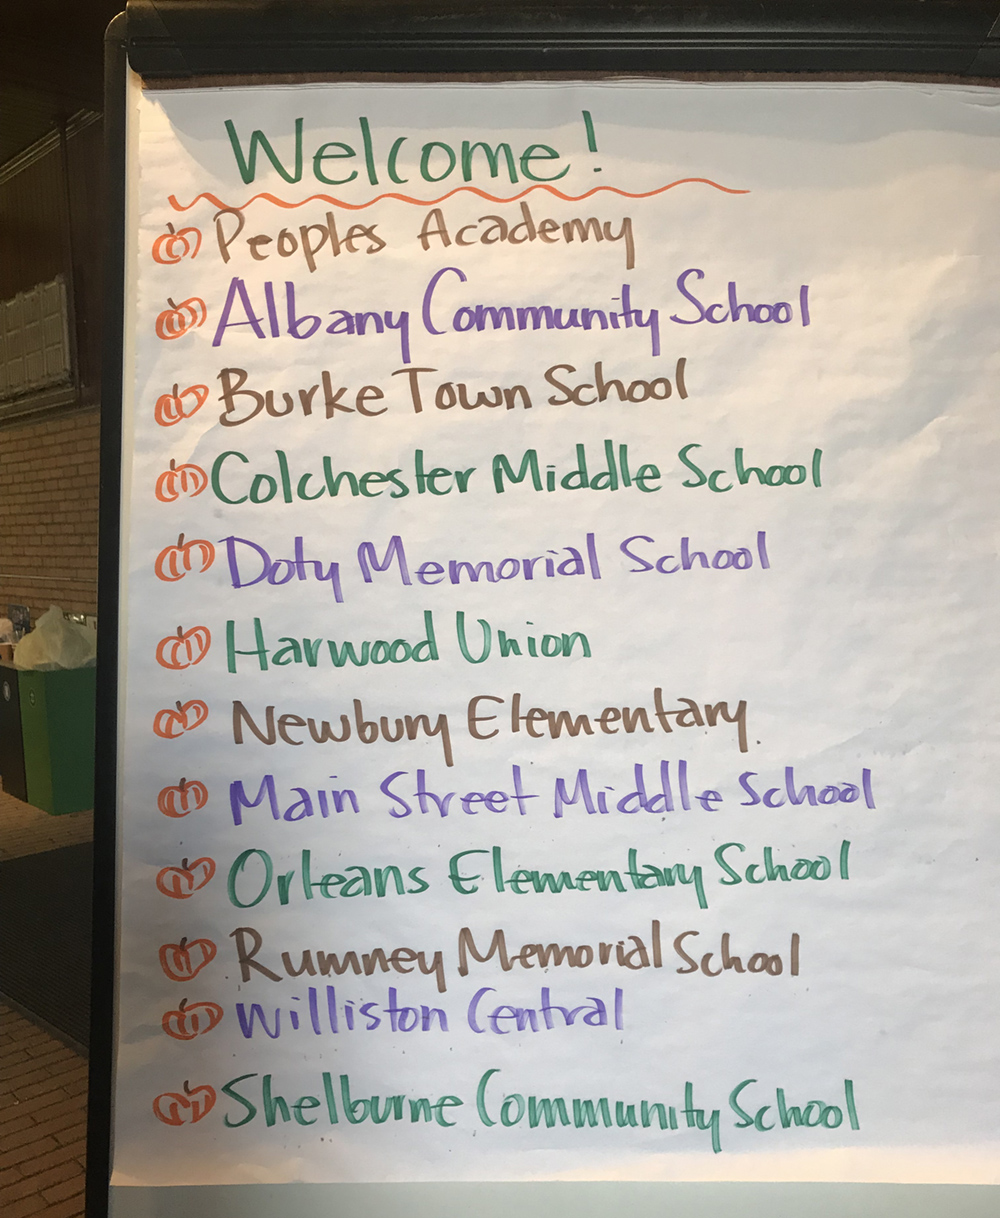 Welcome!
Peoples Academy
Albany Community School
Burke Town School
Colchester Middle School
Doty Memorial School
Harwood Union
Newbury Elementary
Main Street Middle School
Orleans Elementary School
Rumney Memorial School
Williston Central
Shelburne Community School